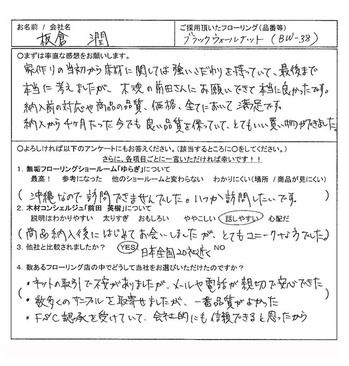 お名前 / 会社名
板倉 潤
ご採用頂いたフローリング(品番等)
ブラックウォールナット (BW-38)
○まずは率直な感想をお願いします。
家作りの当初から床材に関しては強いこだわりを持っていて、最後まで
本当に考えましたが、木魂の前田さんにお願いできて本当に良かったです。
納入前の対応や商品の品質、価格、全てにおいて満足です。
納入から4ヶ月たった今でも良い品質を保っていて、とてもいい買い物ができました。
○よろしければ以下のアンケートにもお答えください。(該当するところに○をしてください。)
さらに、各項目ごとに一言いただければ幸いです!!
1. 無垢フローリングショールーム「ゆらぎ」について
最高! 参考になった 他のショールームと変わらない わかりにくい(場所 / 商品が見にくい)
(沖縄なので訪問できませんでした。いつか訪問したいです。)
2. 木材コンシェルジュ「前田 英樹」について
説明はわかりやすい 太りすぎ おもしろい ややこしい 話しやすい 心配だ
(商品納入後にはじめてお会いしましたが、とてもユニークそうでした)
3. 他社と比較されましたか? YES 日本全国20社ほど NO
4. 数あるフローリング店の中でどうして当社をお選びいただけたのですか?
・ネットの取引で不安がありましたが、メールや電話が親切で安心できた
・数多くのサンプルを取寄せましたが、一番品質がよかった
・FSC認承を受けていて、会社的にも信頼できると思ったから